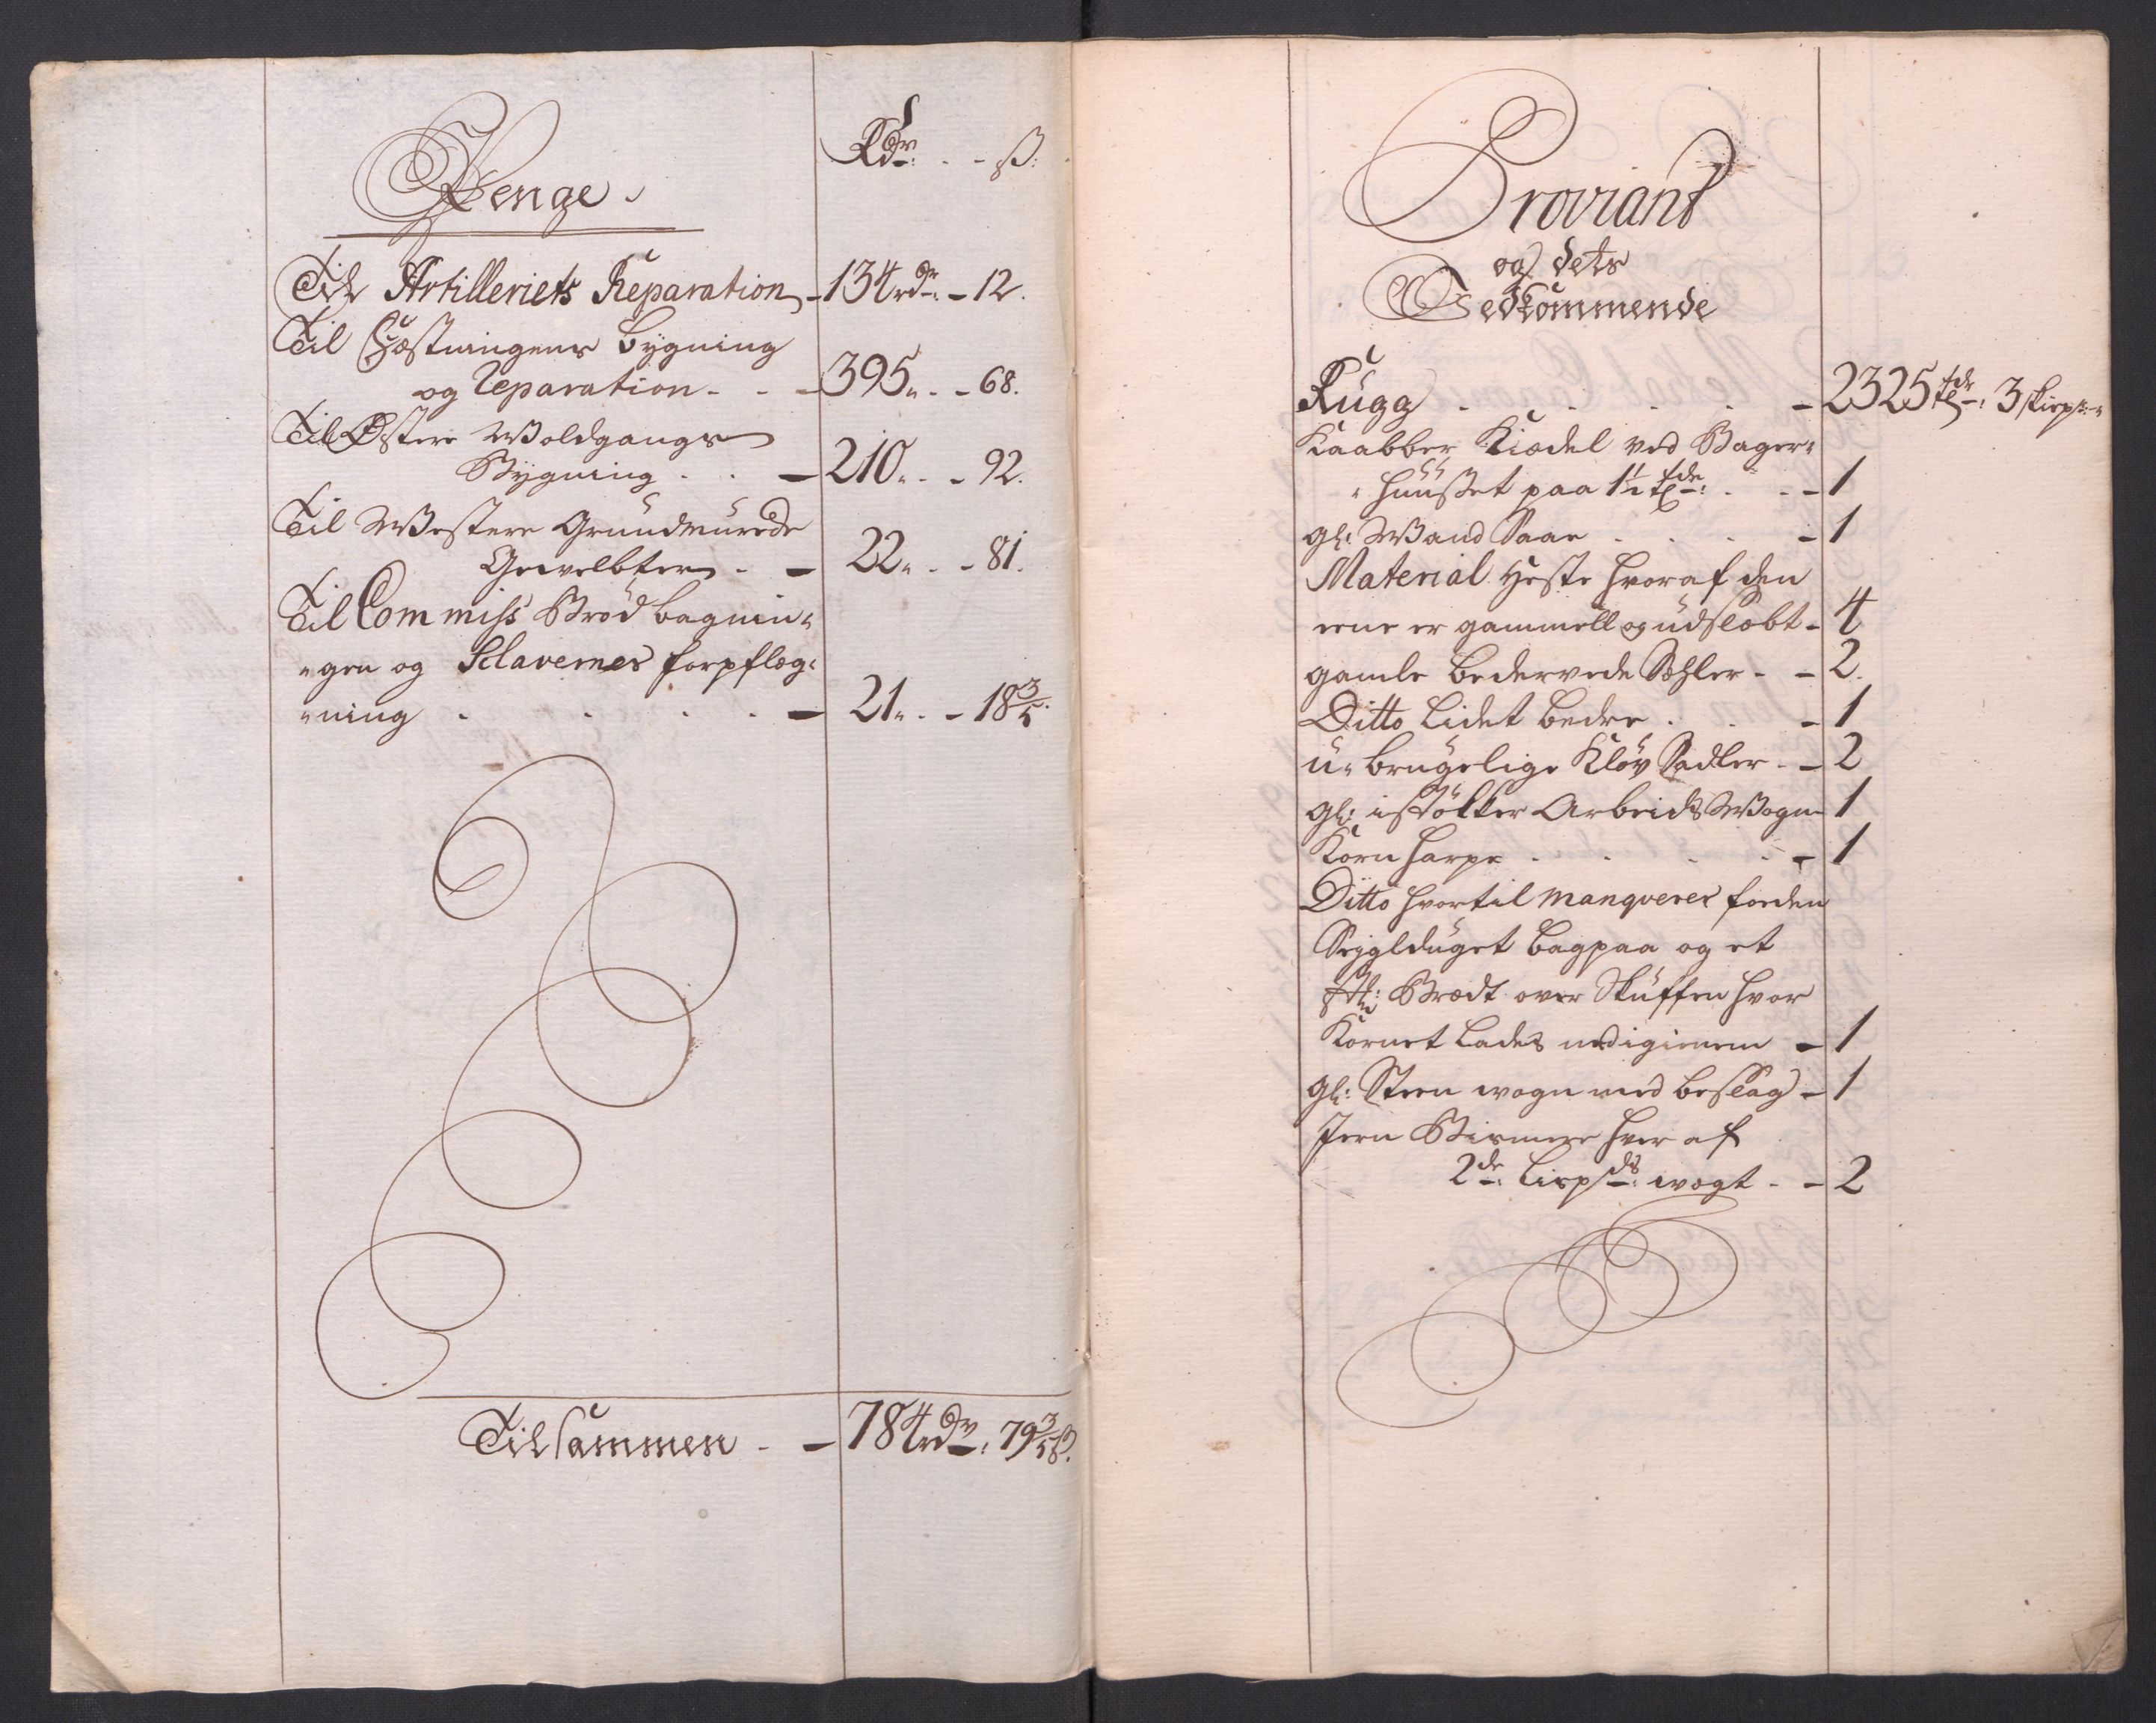 Penge.
Rdr: - - ß:
Til Artilleriets Reparation - 134 rdr: - 12.
Til Fæstningens bygning
og Reparation - - - 395 " - - 68.
Til Østere Woldgangs
Bygning - - - 210 " - - 92.
Til Westere Grundmurede
Gewelbter - - 22 " - - 81.
Til Commiss Brød bagnin"
"gen og Sclavernes forpflæg"
"ning - - - - 21 " - - 18 3/5.
Tilsammen - - 784 rdr: 79 3/5 ß.
Proviant
og dets
Vedkommende
Rugg - - - - - 2325 tdr: 3 skiep:
Kaabber Kiædel ved Bager"
"huußet paa 1½ tde: - - 1
gl: Wand Saae - - - 1
Material Heste hvoraf den
eene er gammell og udslæbt - 4
gamle bedervede Sehler - - 2.
Ditto lidet bedre - - 1
u-brugelige Kløv Sadler - - 2
gl: istøkker Arbeids Wogn 1
Korn harpe - - - - 1
Ditto hvortil manqverer forden
Seyglduget bagpaa og et
st: Brædt over Skuffen hvor
Kornet lades nedigienem - 1
gl: Steen wogn med beslag - 1
Jern Bismere hver af
2de: Lispds: wægt - - 2